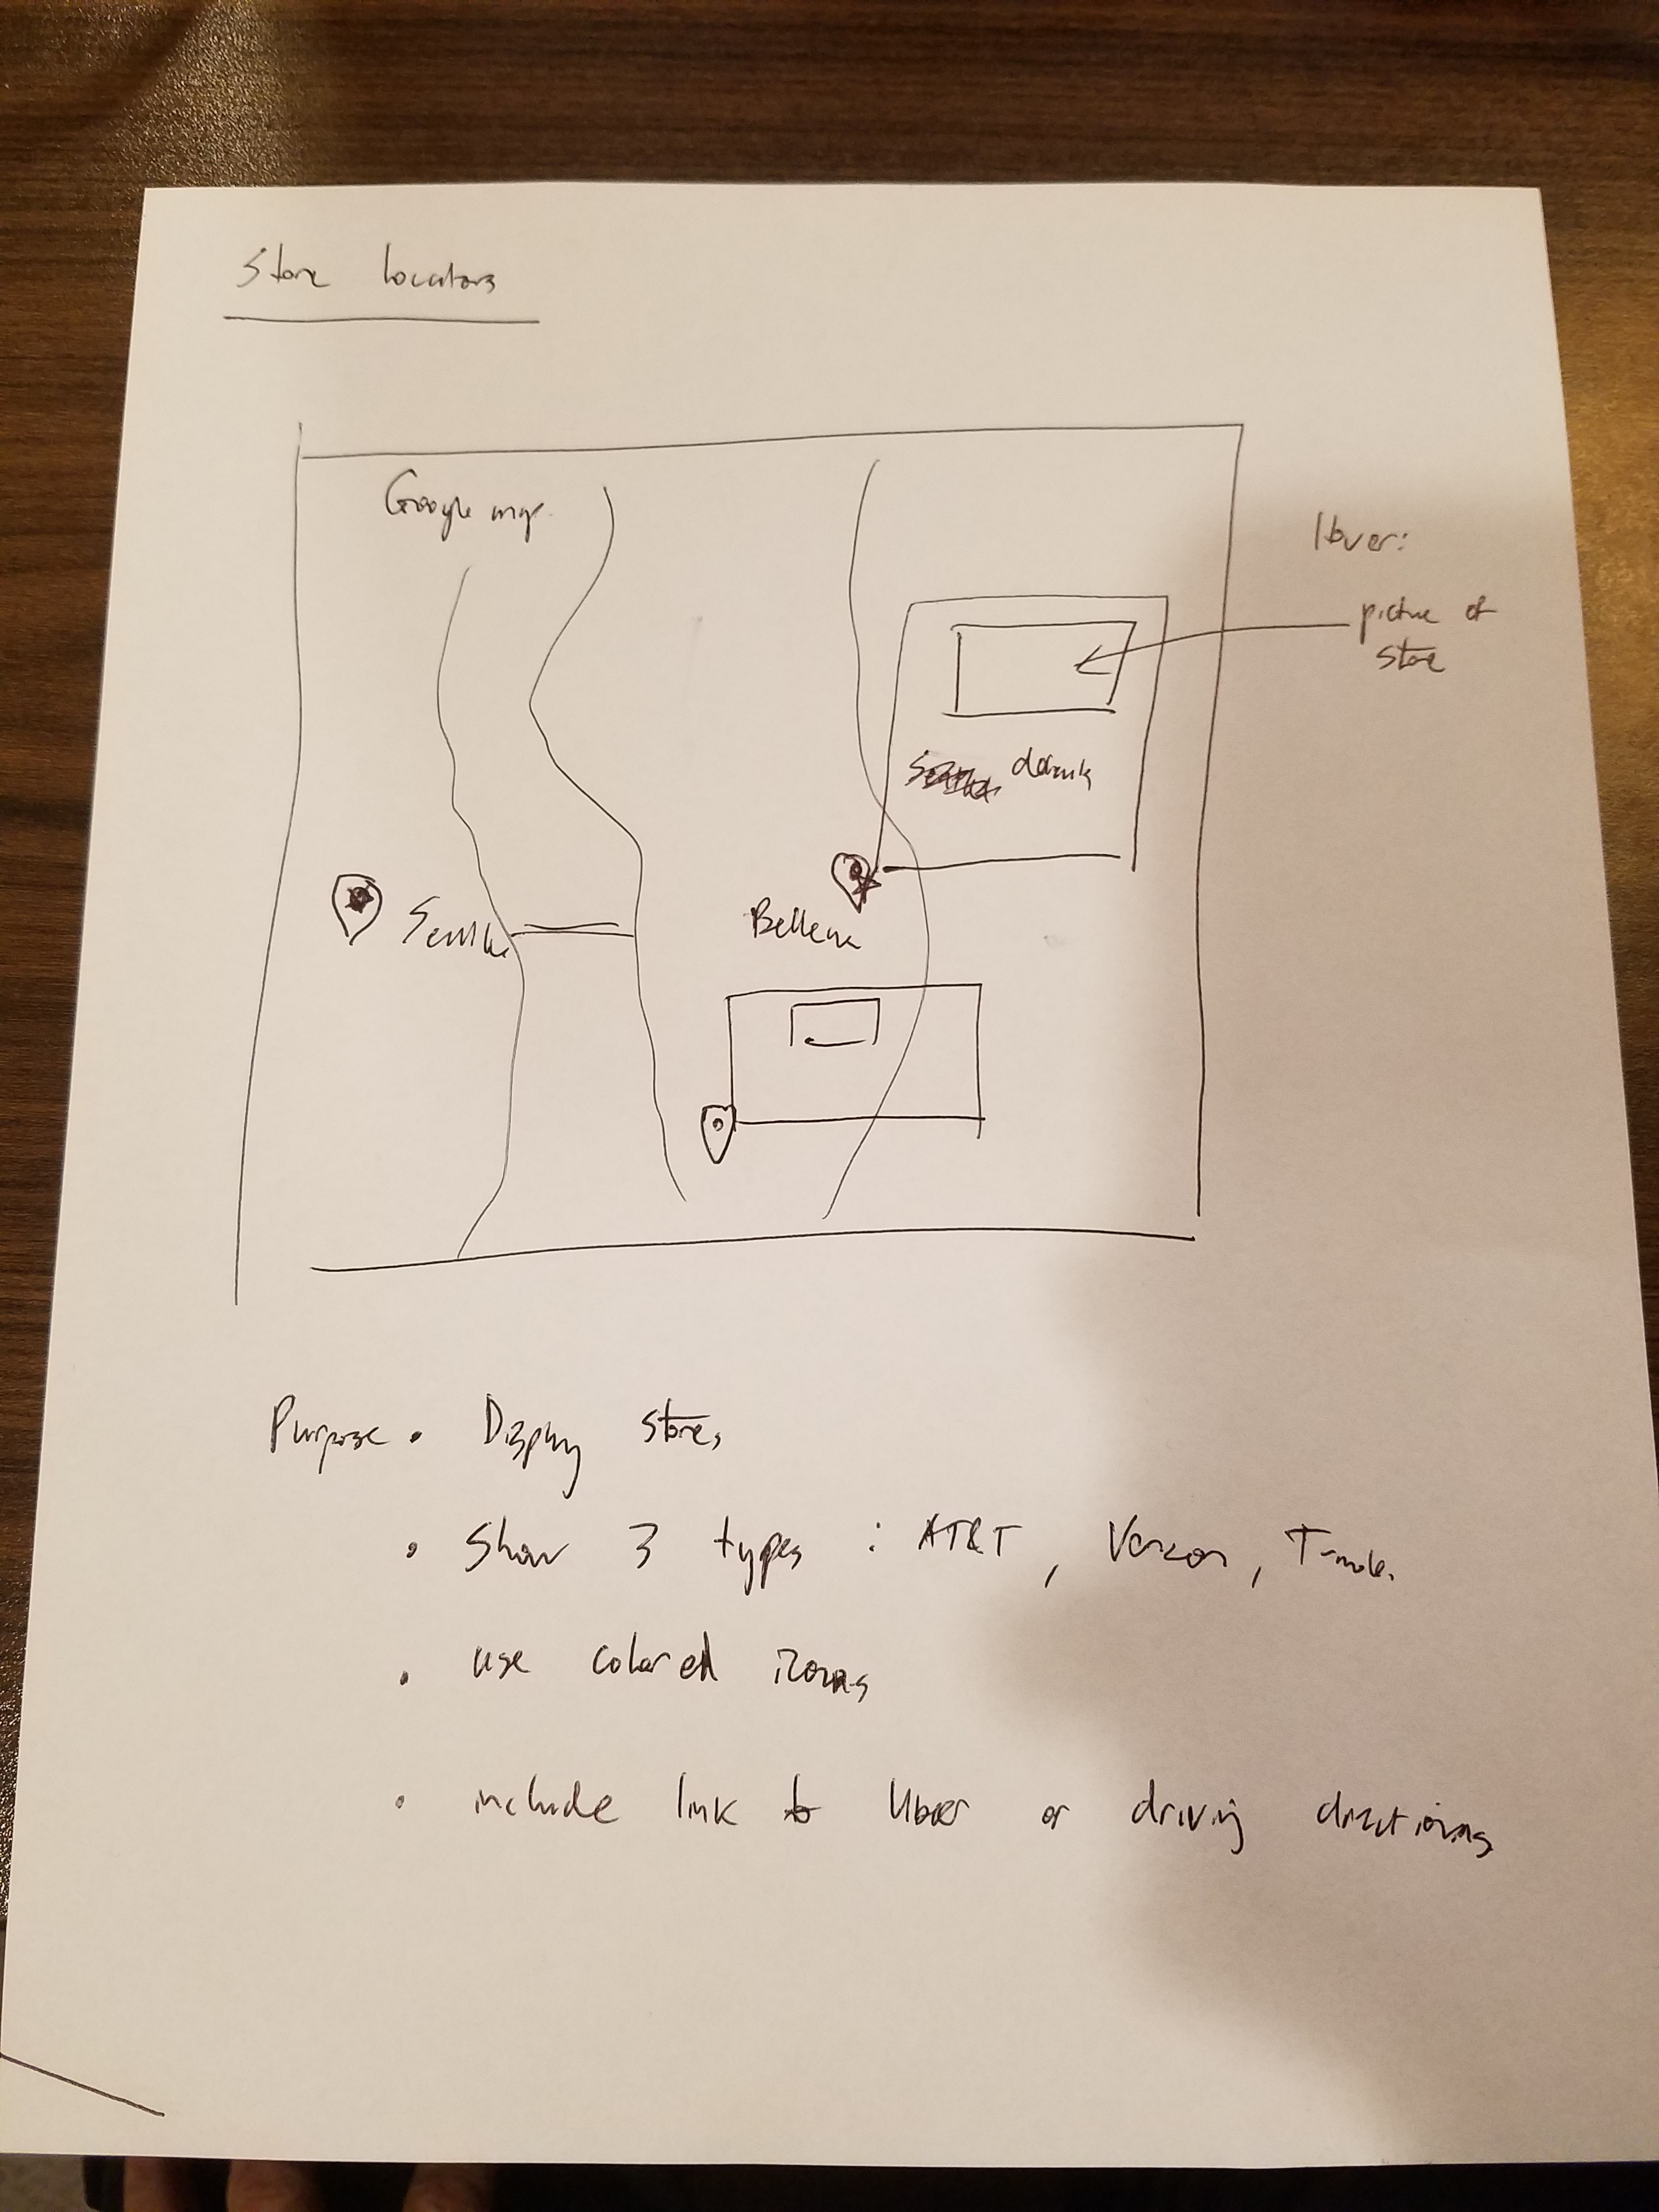 Store Locators
Google map
Hover:
picture of
store
Seattle
Bellevue
Purpose • Display stores
• Show 3 types : AT&T, Verizon, T-mob.
• use colored icons
• include link to Uber or driving directions